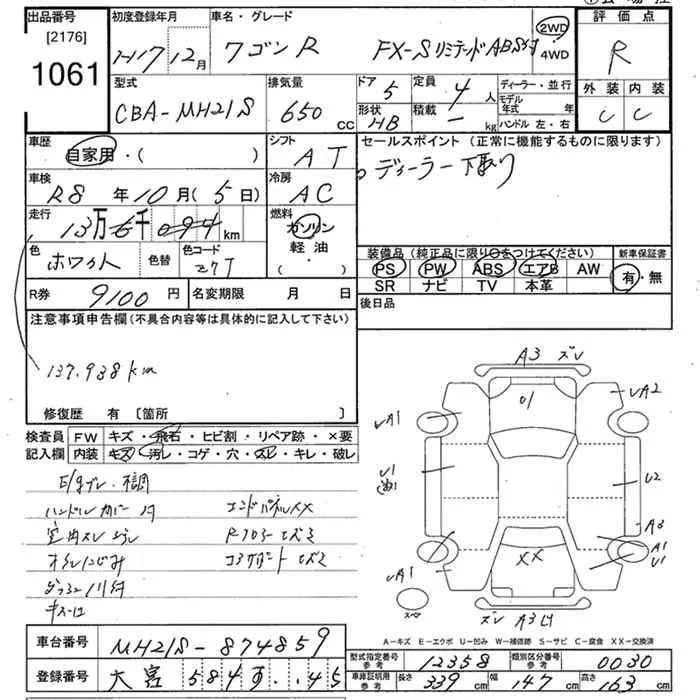 出品番号
[2176]
1061
初度登録年月
H17年12月
車名・グレード
ワゴンR FX-SリミテッドABS付
2WD・4WD
評価点
R
型式
CBA-MH21S
排気量
650 CC
ドア 5
形状 HB
定員 4人
積載 - kg
ディーラー・並行
モデル年式 年
ハンドル 左・右
外装 内装
C C
車歴
自家用・( )
シフト
AT
セールスポイント (正常に機能するものに限ります)
ディーラー下取り
車検
R8年10月(5日)
冷房
AC
走行
13万6千094km
燃料
ガソリン
軽油
・( )
色
ホワイト
色替
色コード
Z7T
装備品 (純正品に限り○をつけてください)
PS PW ABS エアB AW
SR ナビ TV 本革
新車保証書
有・無
R券 9100円
名変期限 月 日
後日品
注意事項申告欄 (不具合内容等は具体的に記入して下さい)
137,938km
修復歴 有 〔箇所 〕
検査員記入欄
FW キズ・飛石・ヒビ割・リペア跡・×要
内装 キズ・汚レ・コゲ・穴・スレ・キレ・破レ
E/gブレ・不調
ハンドルカバー付
エンドパネルXX
室内スレ ヨゴレ
Rフロアーヒズミ
オイルにじみ
コアサポートヒズミ
ダッシュノリ付
キズ・凹
A3 ズレ
01
UA2
UA1
U1
U2
A3
A1
U1
XX
UA1
スペア
ズレ A3凹
A-キズ E-エクボ U-凹み W-補修跡 S-サビ C-腐食 XX-交換済
車台番号
MH21S-874859
型式指定番号 参考
12358
類別区分番号 参考
0030
登録番号
大宮 584 す ・・45
車庫証明用 参考
長さ 339cm
幅 147cm
高さ 163cm